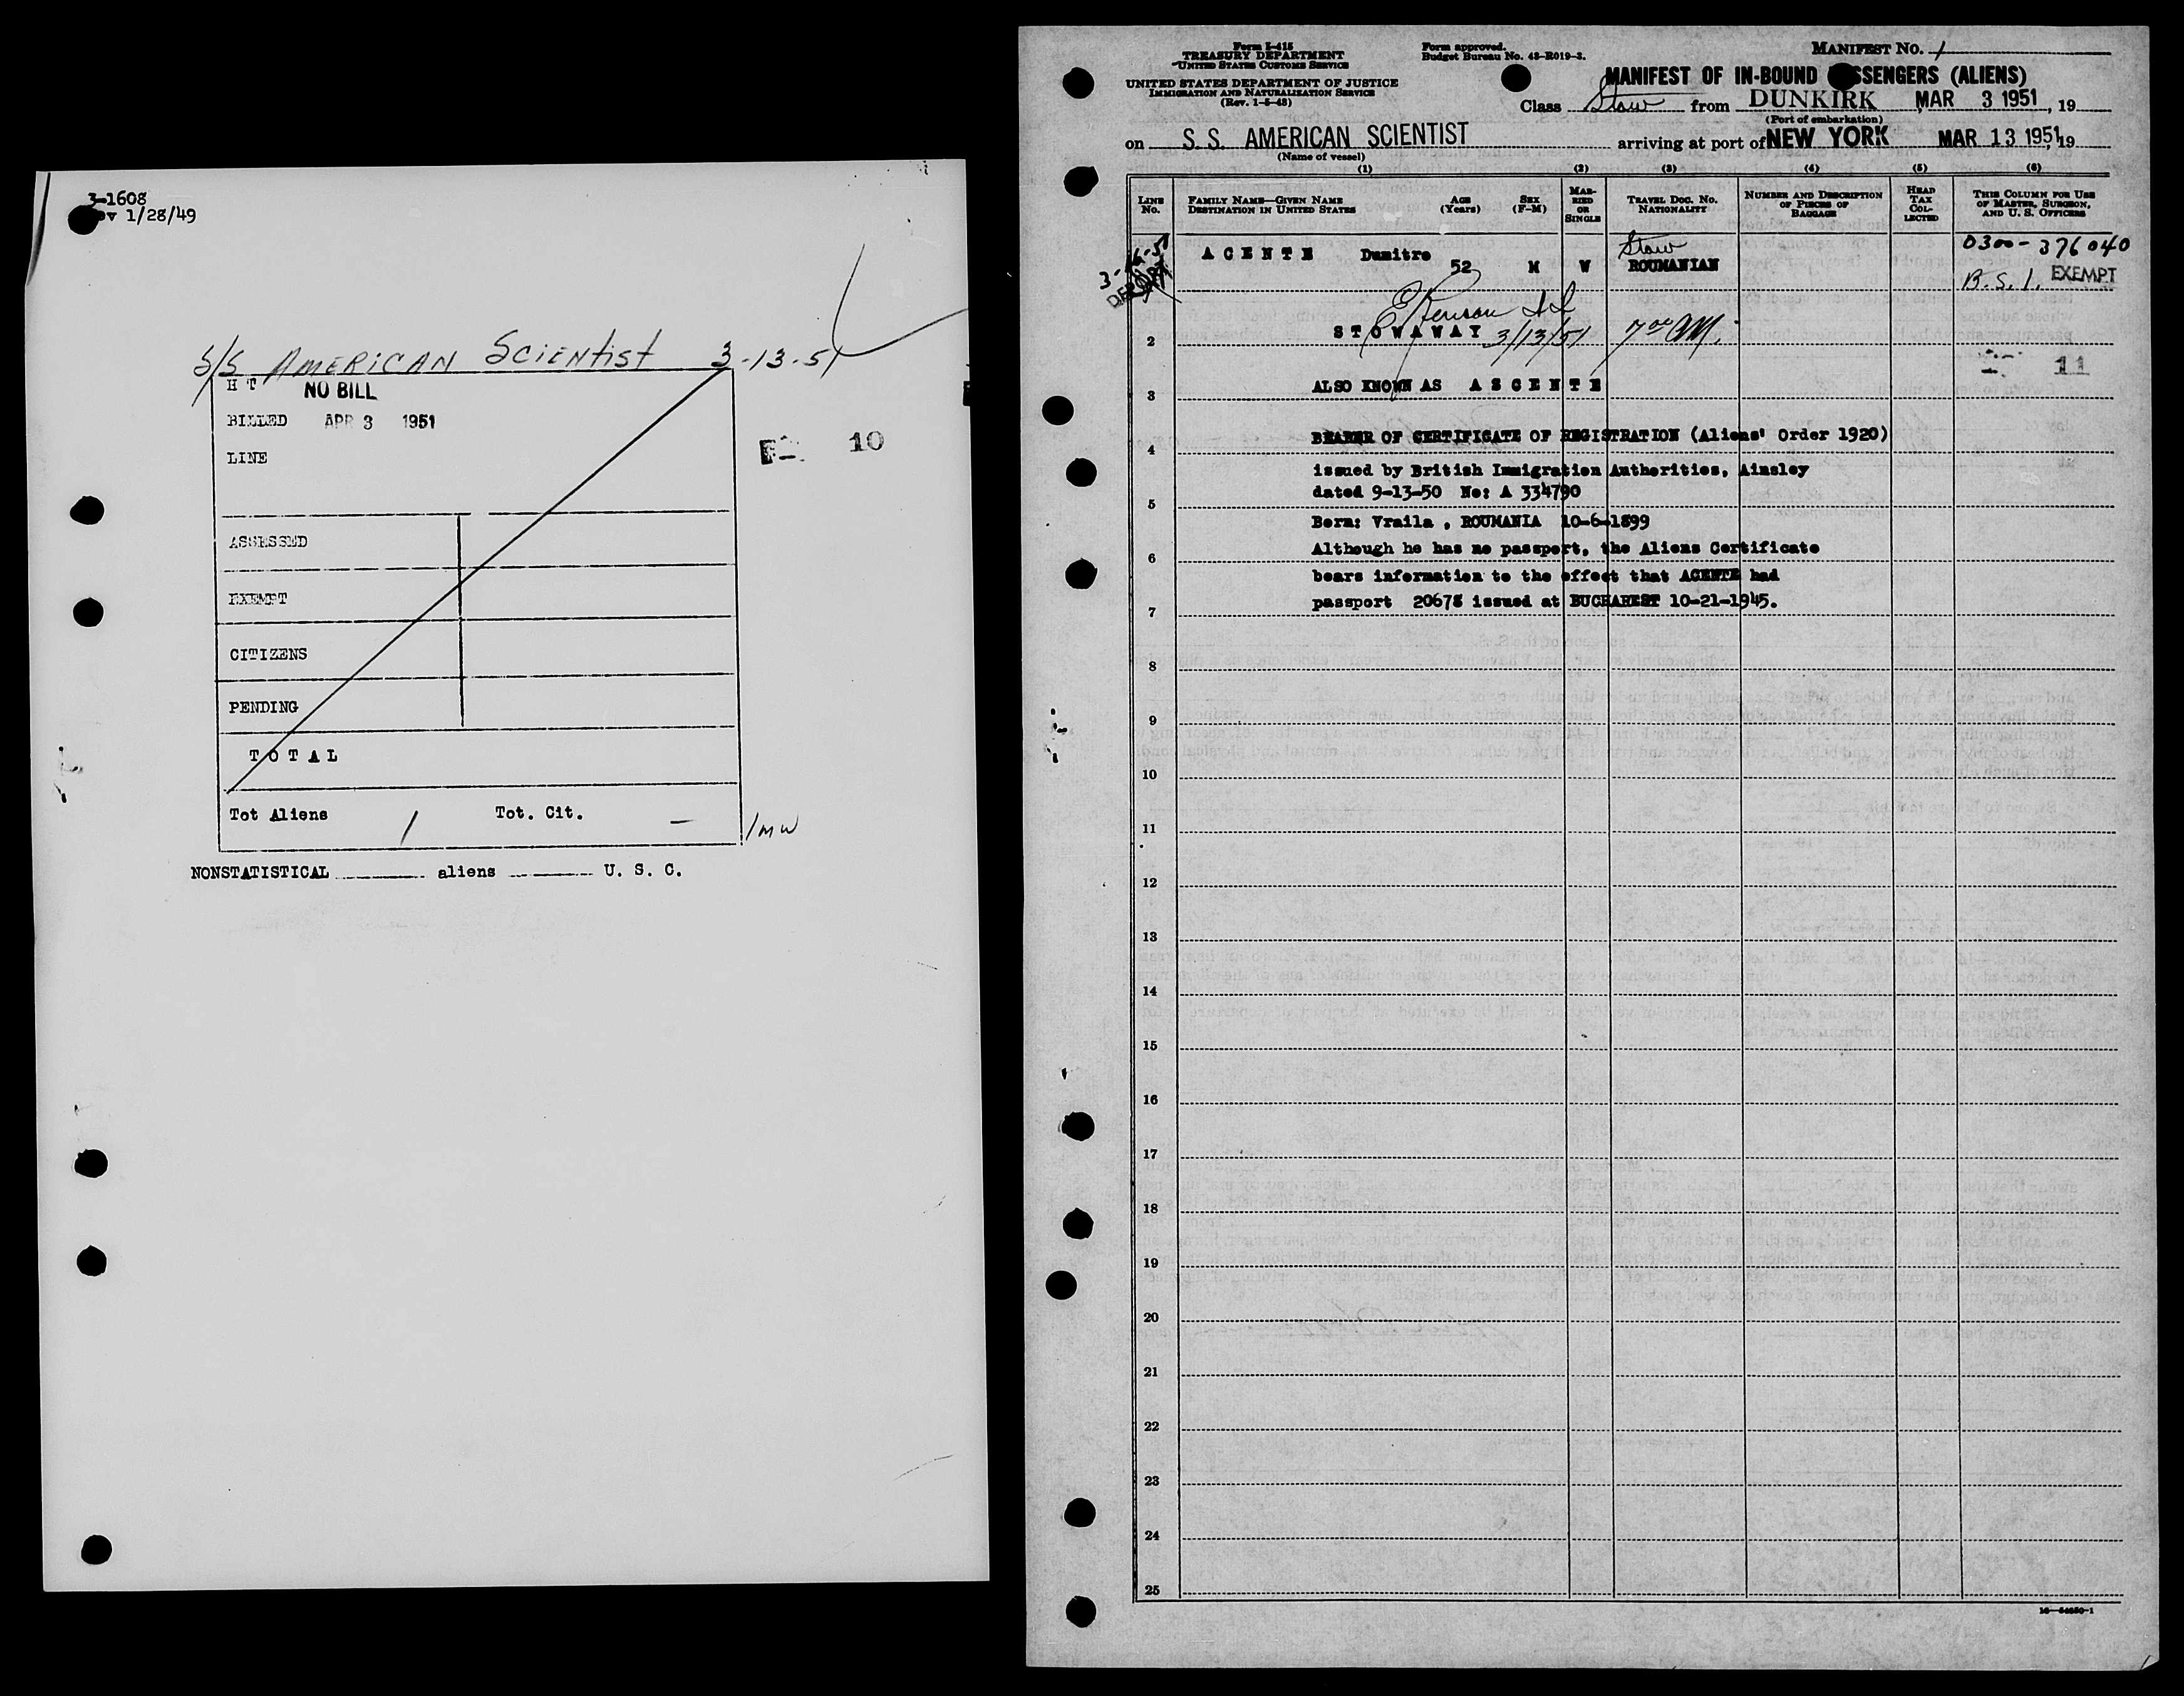 3-1608
1/28/49
S/S AMERICAN Scientist 3-13-51
H T
NO BILL
BILLED APR 3 1951
LINE
10
ASSESSED
EXEMPT
CITIZENS
PENDING
T O T A L
Tot Aliens / Tot. Cit. — /mw
NONSTATISTICAL ______ aliens ______ U. S. C.
Form I-415
TREASURY DEPARTMENT
UNITED STATES CUSTOMS SERVICE
UNITED STATES DEPARTMENT OF JUSTICE
IMMIGRATION AND NATURALIZATION SERVICE
(Rev. 1-5-48)
Form approved.
Budget Bureau No. 43-R019-3.
MANIFEST NO. 1
MANIFEST OF IN-BOUND PASSENGERS (ALIENS)
Class Stow from DUNKIRK MAR 3 1951, 19
(Port of embarkation)
on S. S. AMERICAN SCIENTIST arriving at port of NEW YORK MAR 13 1951, 19
(Name of vessel)
(1) (2) (3) (4) (5) (6)
LINE No.
FAMILY NAME—GIVEN NAME
DESTINATION IN UNITED STATES
AGE (Years)
SEX (F-M)
MARRIED OR SINGLE
TRAVEL DOC. NO. NATIONALITY
NUMBER AND DESCRIPTION OF PIECES OF BAGGAGE
HEAD TAX COLLECTED
THIS COLUMN FOR USE OF MASTER, SURGEON, AND U. S. OFFICERS
A G E N T E Dumitro 52 M W Stow ROUMANIAN
0300-376040
B.S.I. EXEMPT
S T O W A W A Y 3/13/51 7 00 AM.
11
ALSO KNOWN AS A S C E N T E
BEARER OF CERTIFICATE OF REGISTRATION (Aliens' Order 1920)
issued by British Immigration Authorities, Ainsley
dated 9-13-50 No: A 334790
Born: Vraila , ROUMANIA 10-6-1899
Although he has no passport, the Aliens Certificate
bears information to the effect that AGENTE had
passport 20678 issued at BUCHAREST 10-21-1945.
2
3
4
5
6
7
8
9
10
11
12
13
14
15
16
17
18
19
20
21
22
23
24
25